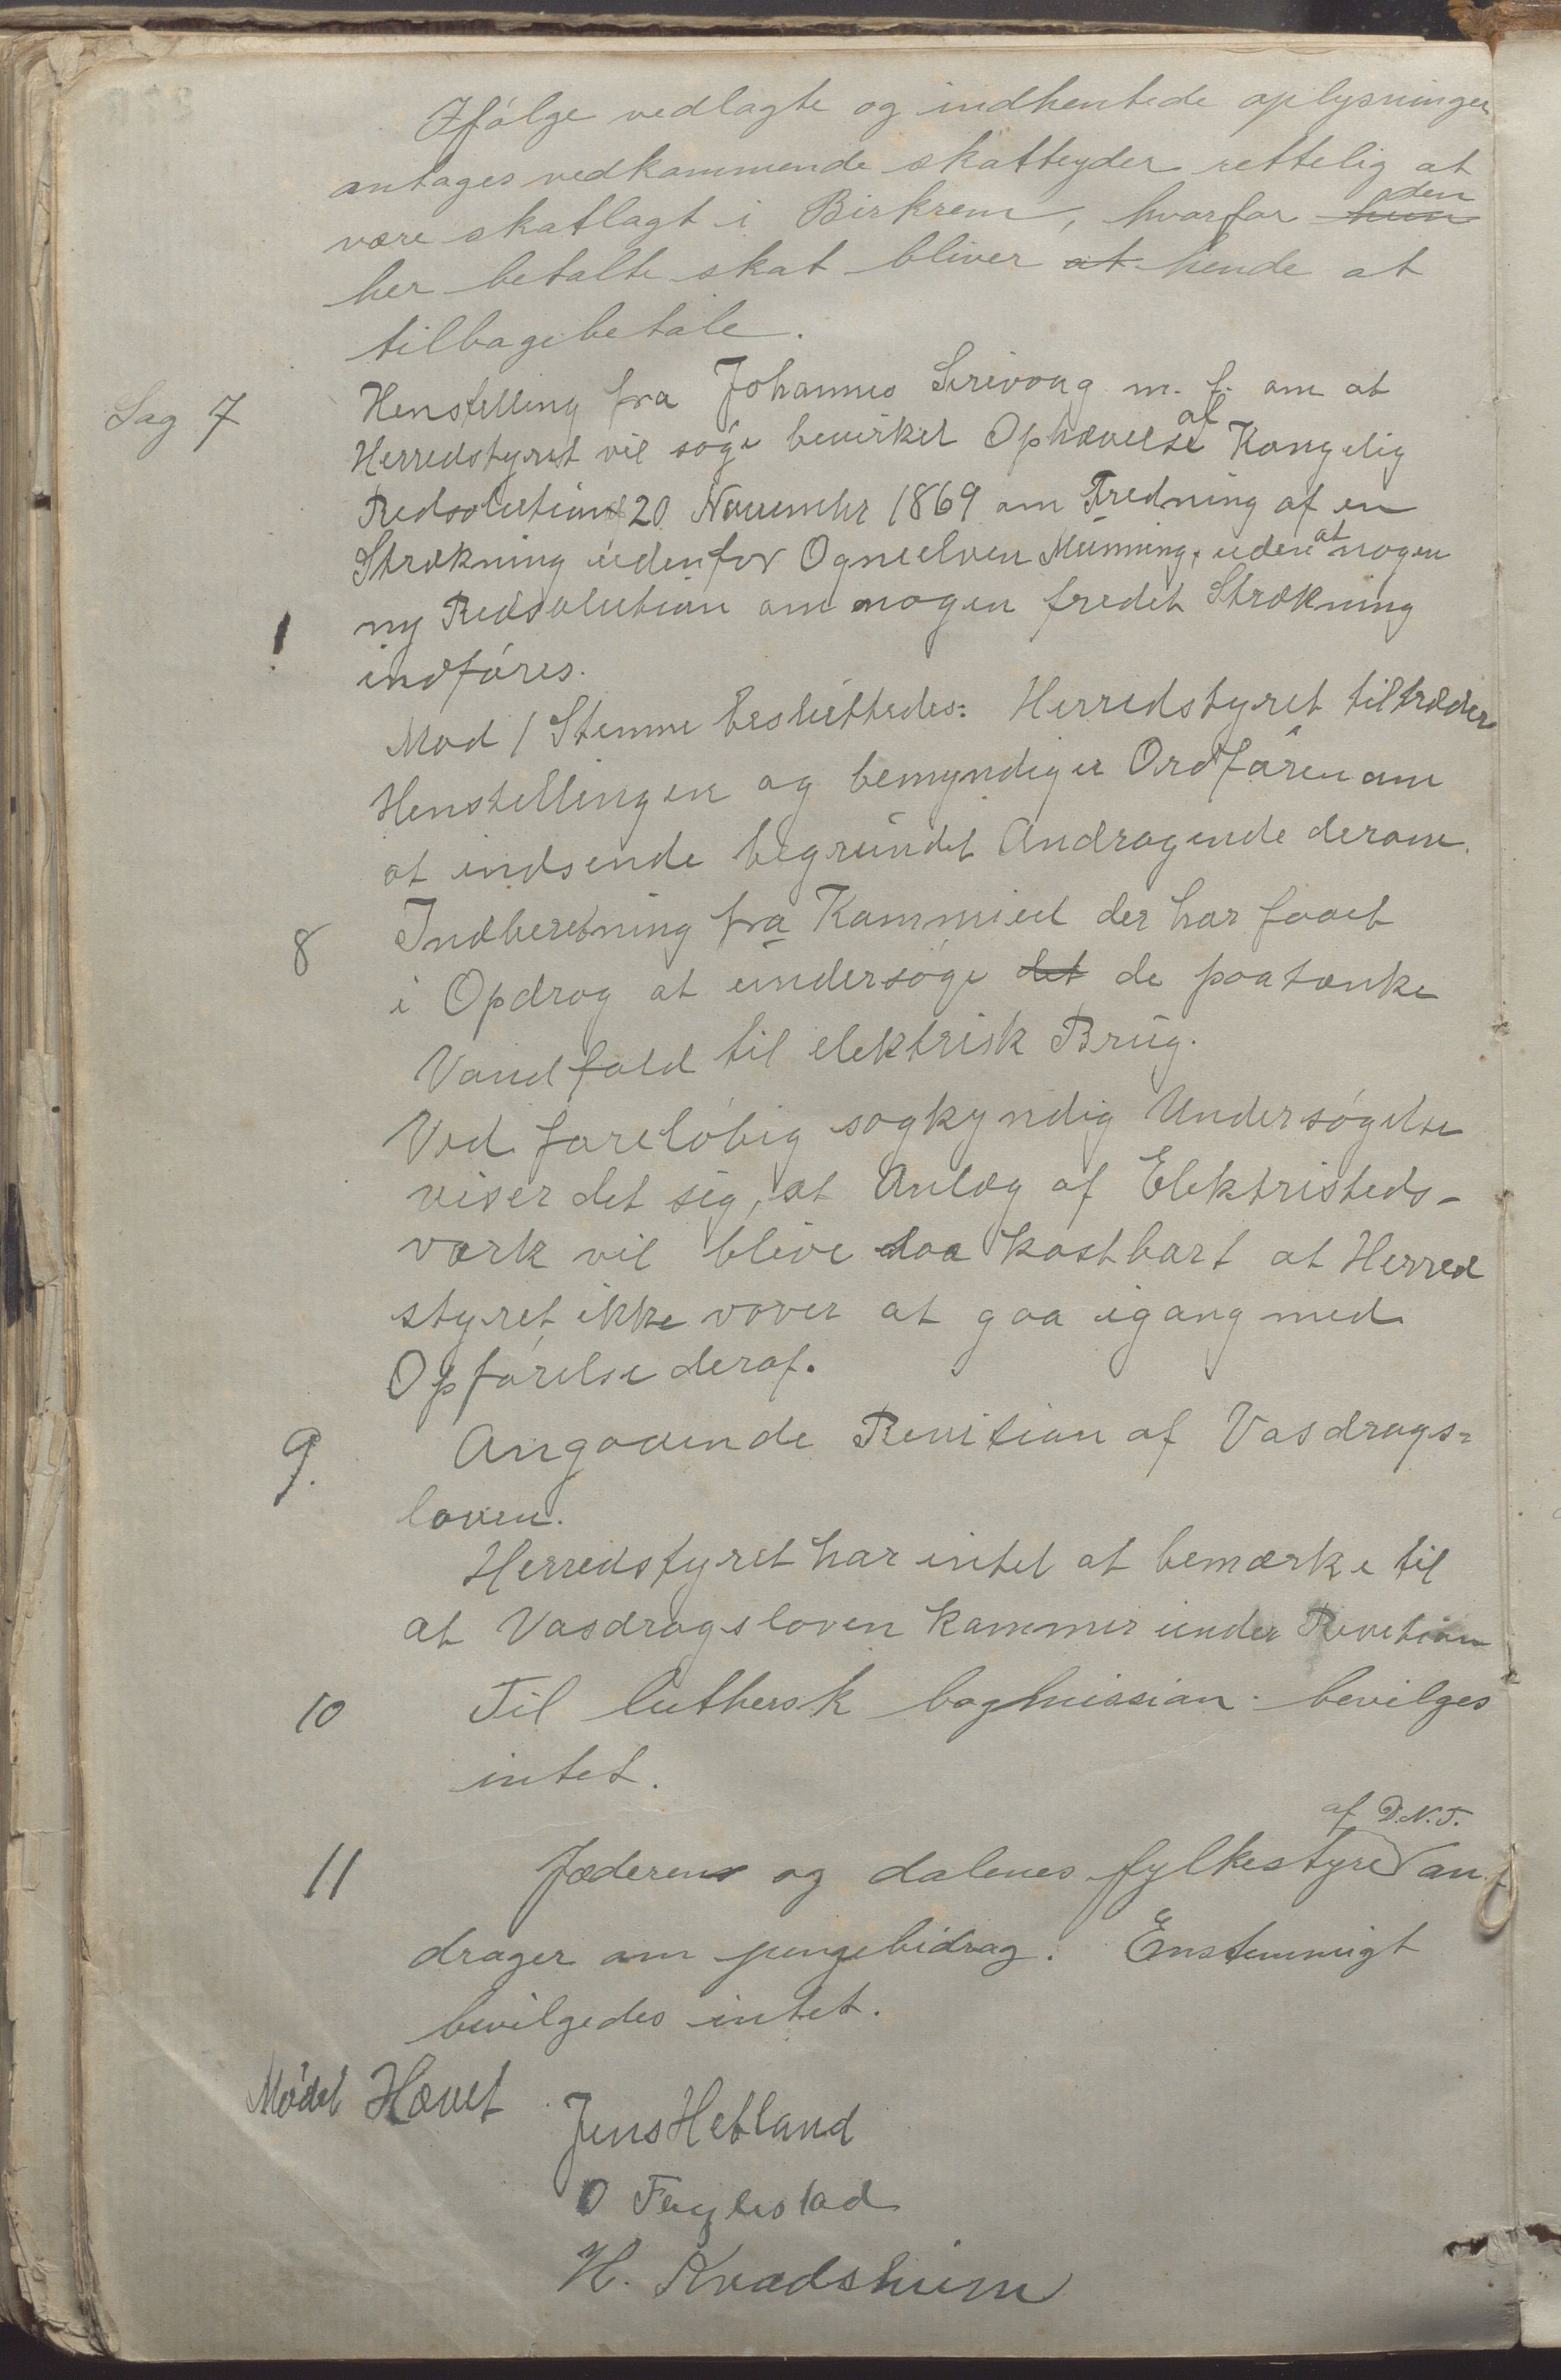 Ifølge vedlagte og indhentede oplysninger
antages vedkommende skatteyder rettelig at
være skatlagt i Birkrem, hvorfor hun den
her betalte skat bliver at hende at
tilbagebetale.
Sag 7 Henstilling fra Johannes Sirevaag m. fl. om at
Herredstyret vil søge bevirket Ophævelse af Kongelig
Redsolution 20 November 1869 om Fredning af en
Strækning udenfor Ogneelven Munning, uden at nogen
ny Redsolution om nogen fredet Strækning
indføres.
Mod 1 Stemme besluttedes: Herredstyret tiltræder
Henstillingen og bemyndiger Ordføreren om
at indsende begrundet Andragende derom.
8 Indberetning fra Kommiteed der har faaet
i Opdrag at undersøge det de paatænke
Vandfald til elektrisk Brug.
Ved foreløbig sagkyndig Undersøgelse
viser det sig, at Anlæg af Elektristeds-
værk vil blive saa kostbart at Herred
styret ikke vover at gaa igang med
Opførelse deraf.
9. Angaaende Revition af Vasdrags=
loven.
Herredstyret har intet at bemærke til
at Vasdragsloven kommer under Revetion
10 Til luthersk bogmission bevilges
intet.
11 Jæderens og dalenes fylkestyre af D.N.T. an-
drager om pengebidrag. Enstemmigt
bevilgedes intet.
Mødet Hævet
Jens Hetland
O Fuglestad
H. Kvadsheim